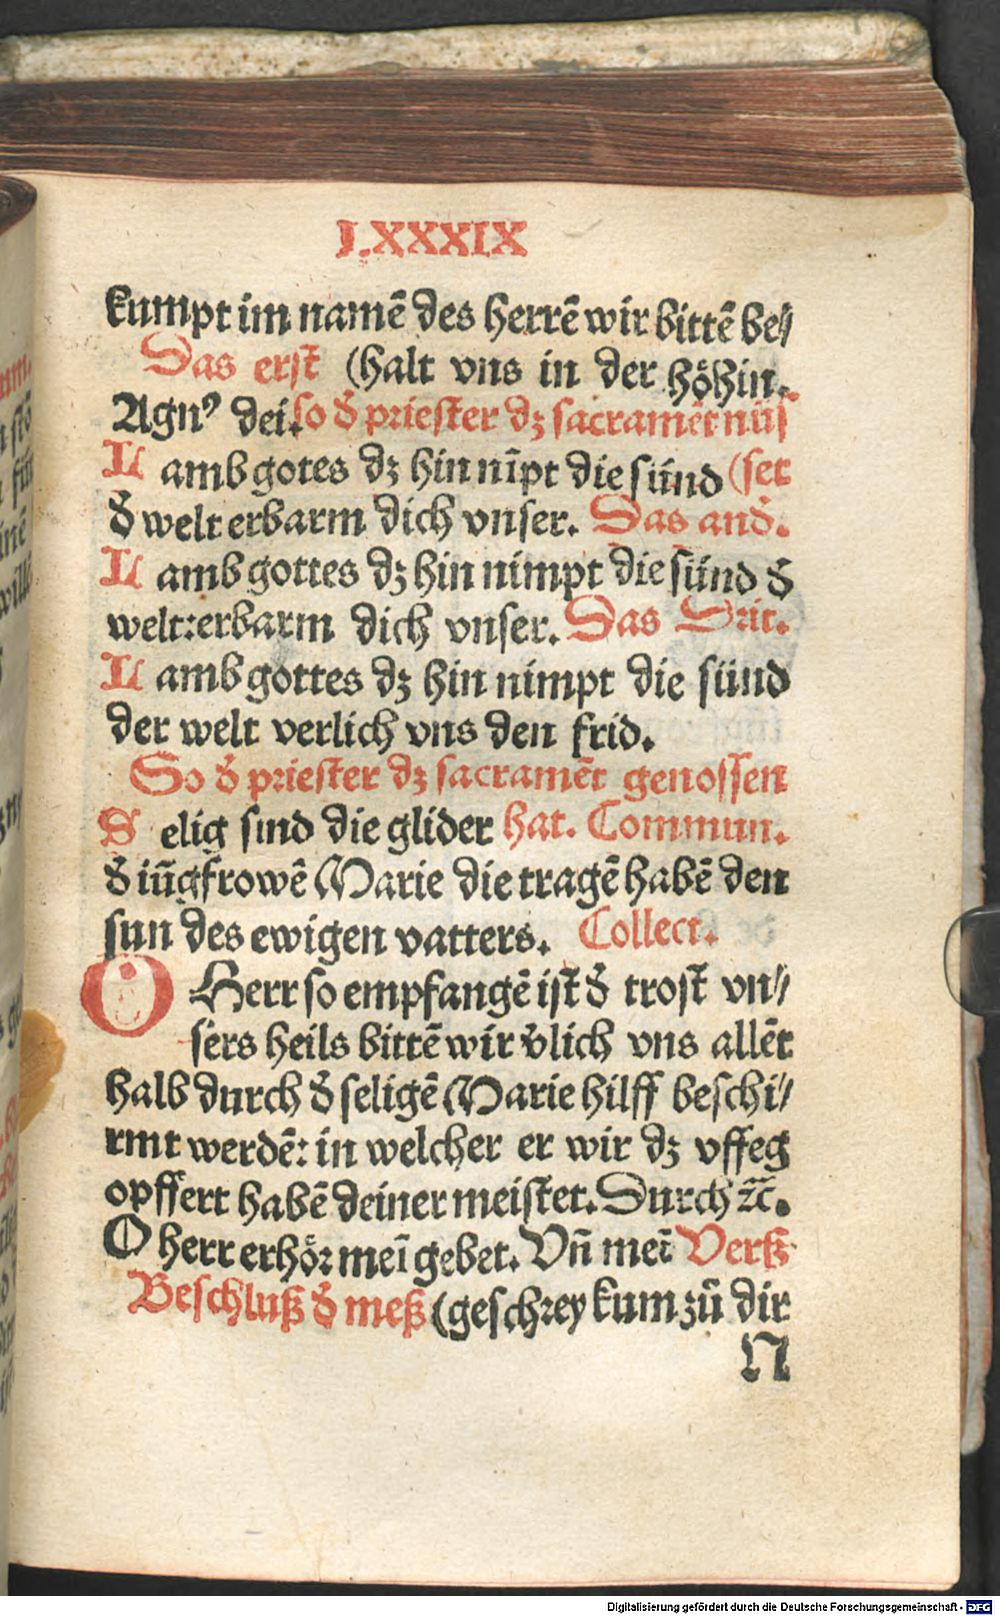 L.XXXIX
kumpt im namē des herrē wir bittē be⸗
Das erst (halt vns in der höhin.
Agnꝰ dei. so d̄ priester dꝫ sacramēt nüs
Lamb gotes dꝫ hin nīpt die sünd (set
d̄ welt erbarm dich vnser. Das and̄.
Lamb gottes dꝫ hin nimpt die sünd d̄
welt:erbarm dich vnser. Das Drit.
Lamb gottes dꝫ hin nimpt die sünd
der welt verlich vns den frid.
So d̄ priester dꝫ sacramēt genossen
Selig sind die glider hat. Commun.
d̄ iūgfrowē Marie die tragē habē den
sun des ewigen vatters. Collect.
O Herr so empfangē ist d̄ trost vn⸗
sers heils bittē wir v̄lich vns allēt
halb durch d̄ seligē Marie hilff beschi⸗
rmt werdē: in welcher er wir dꝫ vffeg
opffert habē deiner meistet. Durch ꝛc̄.
O herr erhör meī gebet. Vn̄ meī Verß
Beschluß d̄ meß (geschrey kum zů dir
N
Digitalisierung gefördert durch die Deutsche Forschungsgemeinschaft - DFG